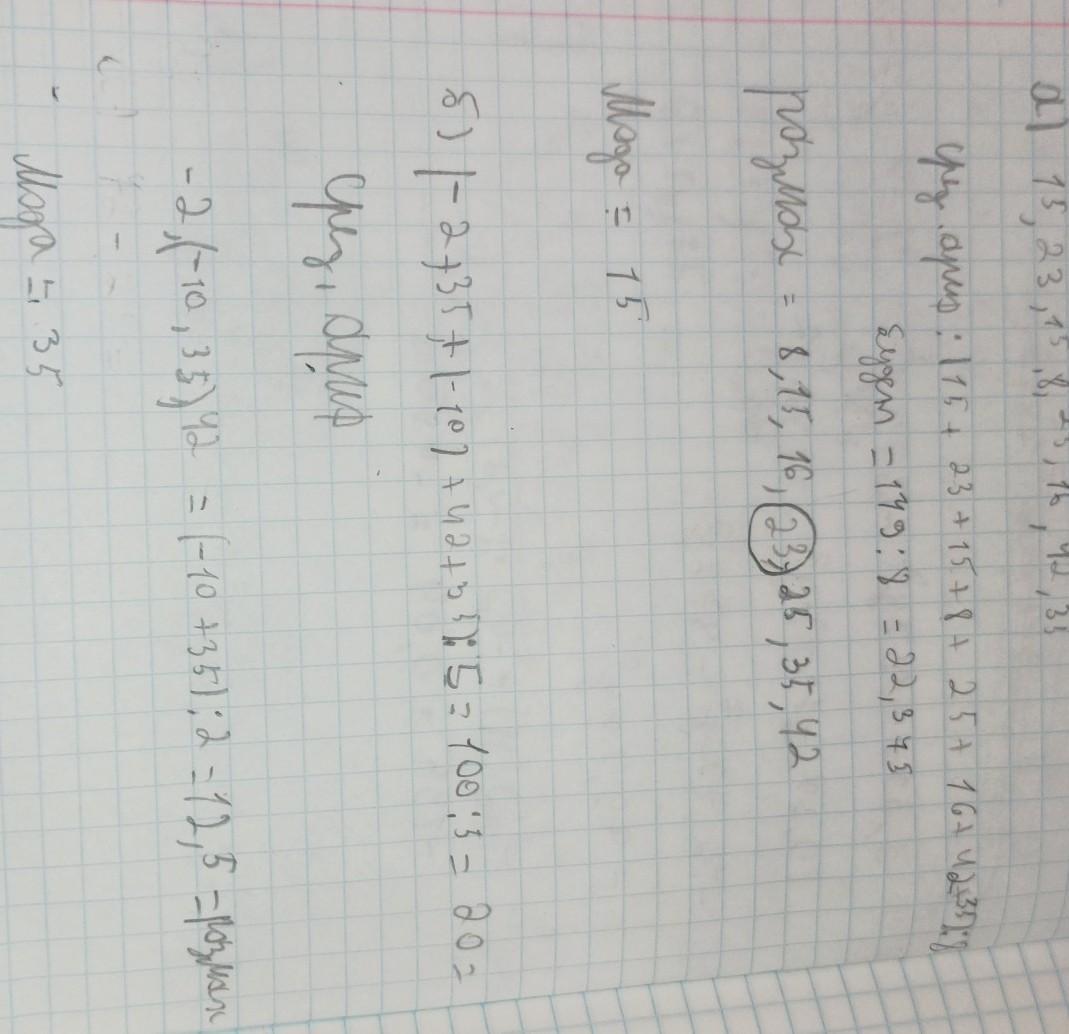 а) 15, 23, 15, 8, 25, 16, 42, 35
Сред. ариф: (15 + 23 + 15 + 8 + 25 + 16 + 42+35):8
Будет = 179:8 = 22,375
размах = 8, 15, 16, 23, 25, 35, 42
Мода = 15
б) (-2+35+(-10)+42+35):5=100:5= 20 =
Сред, ариф
-2,(-10,35)42 = (-10 +35):2 =12,5 =размах
Мода = 35